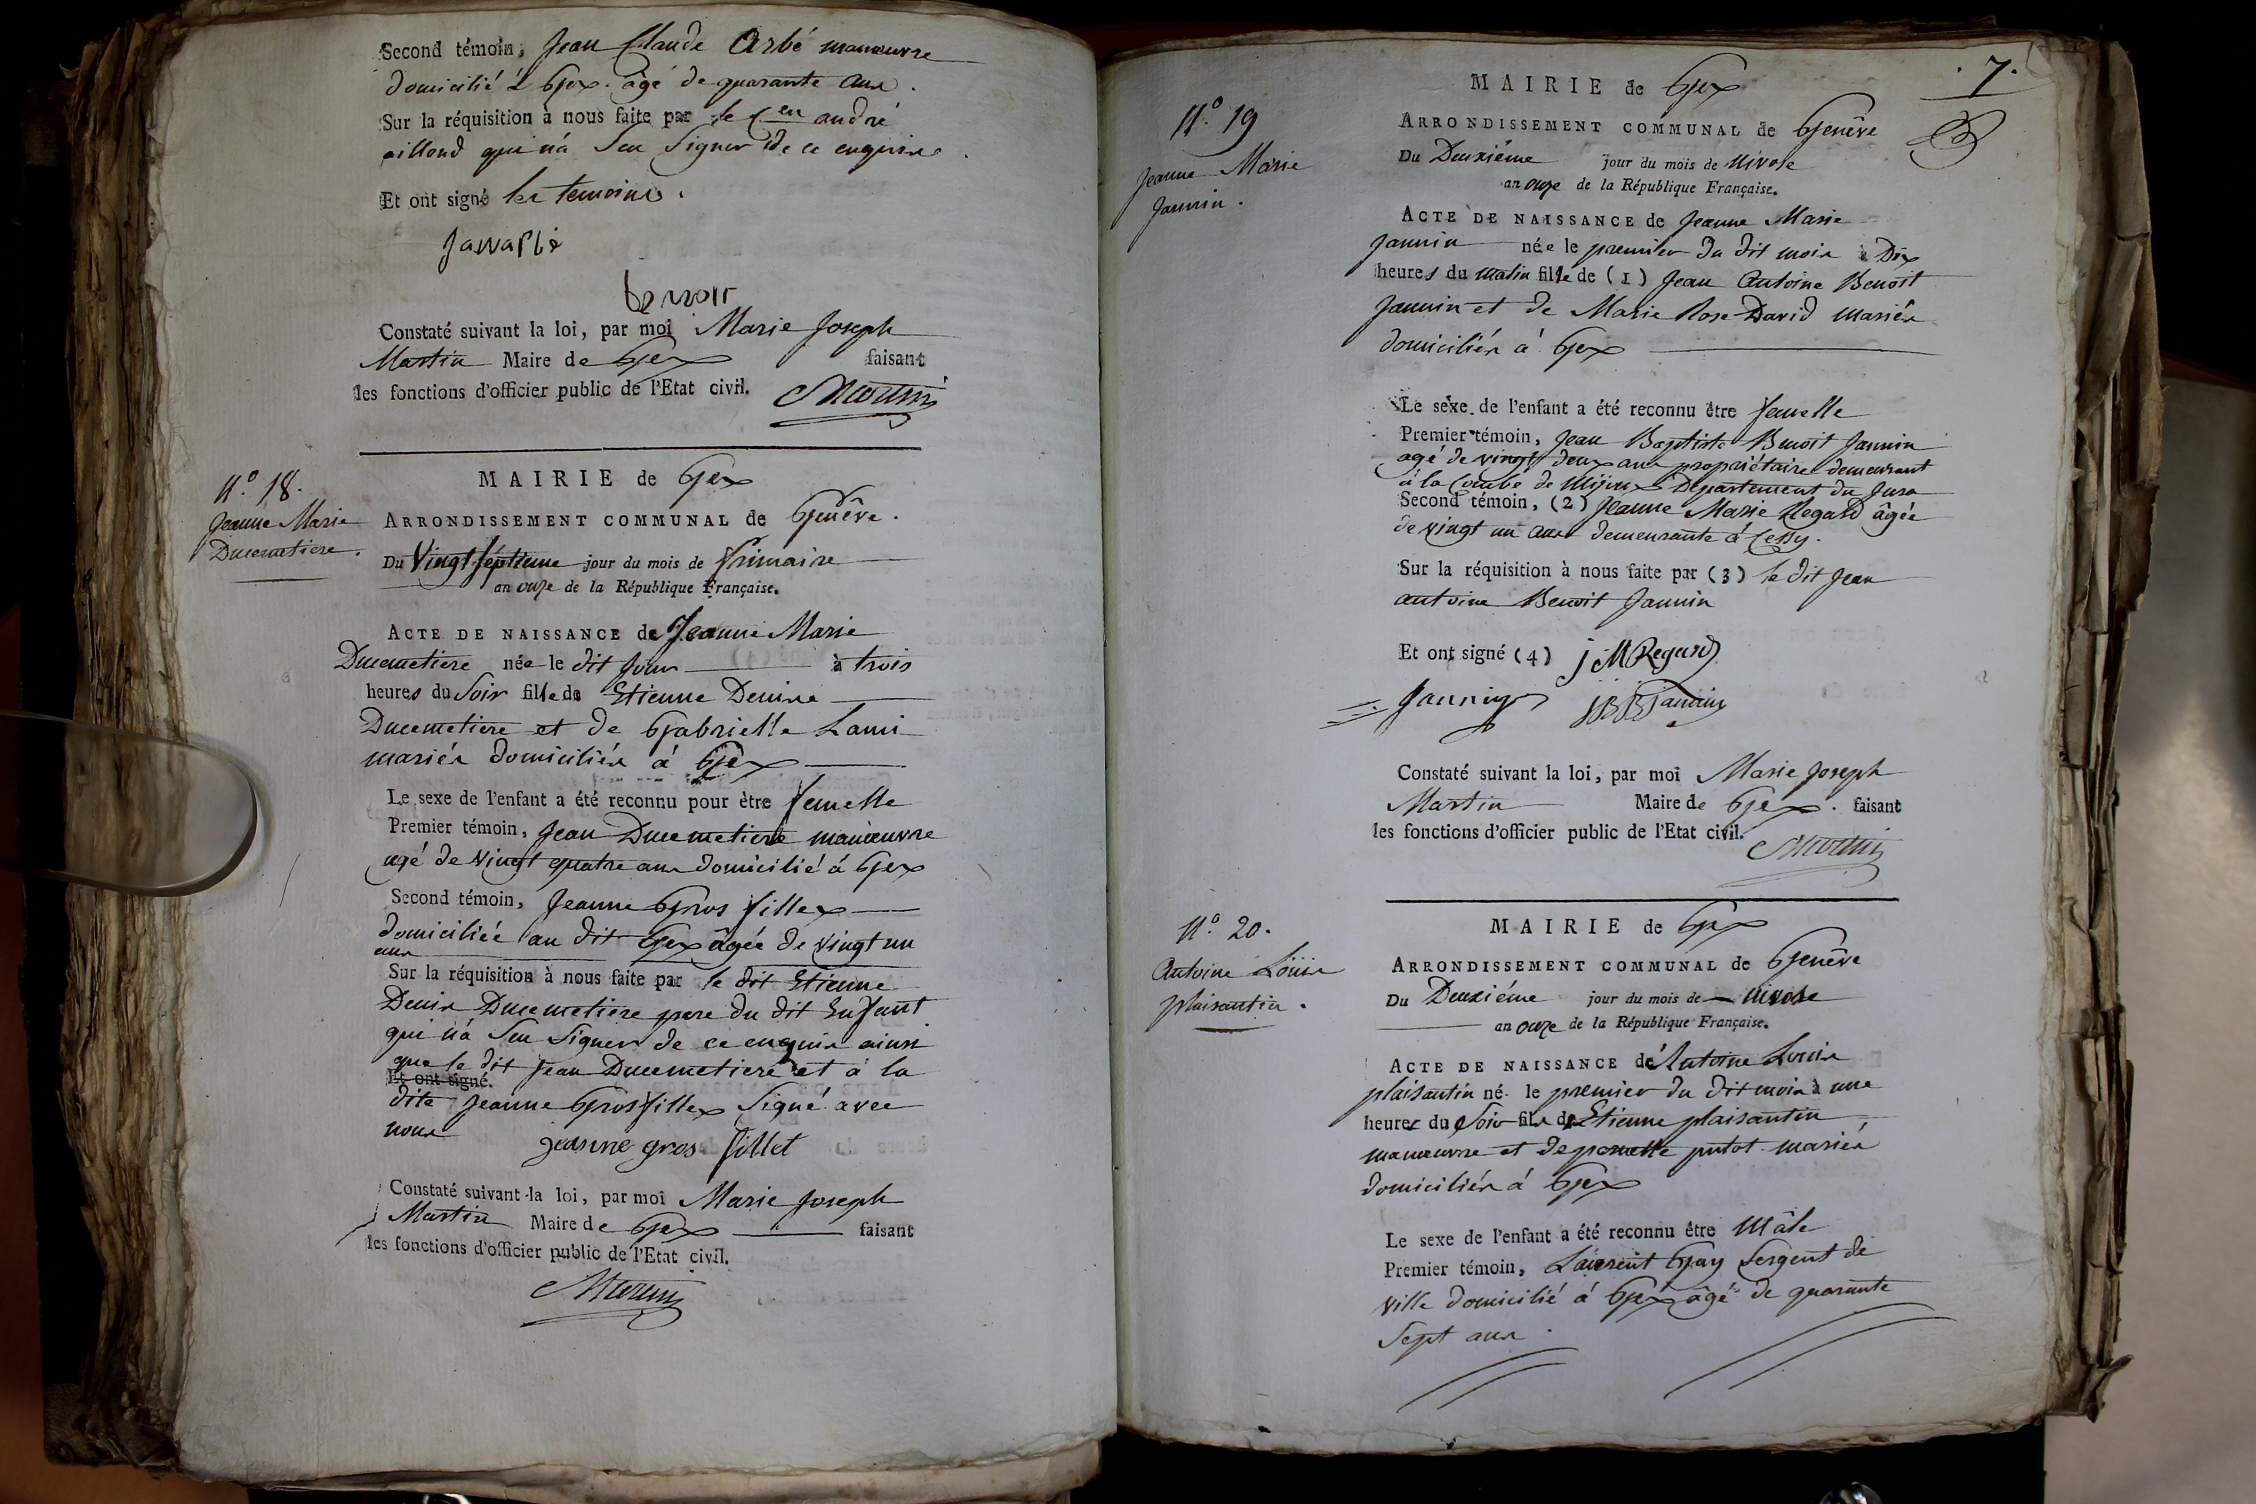 Second témoin, Jean Claude Arbé manœuvre
domicilié à Gex âgé de quarante ans.
Sur la réquisition à nous faite par le Cen andré
ailloud qui n'a Seu Signer de ce enquis.
Et ont signé les temoins.
Constaté suivant la loi, par moi Marie Joseph
Martin Maire de Gex faisant
les fonctions d'officier public de l'Etat civil. Martin
N.º 18.
Jeanne Marie
Ducemetiere.
MAIRIE de Gex
ARRONDISSEMENT COMMUNAL de Genêve.
Du Vingt Séptieme jour du mois de frimaire
an onze de la République Française.
ACTE DE NAISSANCE de Jeanne Marie
Ducemetiere née le dit Jour à trois
heures du Soir fille de Etienne Denine
Ducemetiere et de Gabrielle Lami
mariés domiciliés á Gex
Le sexe de l'enfant a été reconnu pour être femelle
Premier témoin, Jean Ducemetiere manœuvre
agé de vingt quatre ans domicilié á Gex
Second témoin, Jeanne Gros fillex
domiciliée au dit Gex âgée de vingt un
ans
Sur la réquisition à nous faite par le dit Etienne
Denis Ducemetiere pere du dit Enfant
qui n'a Seu Signer de ce enquis ainsi
que le dit Jean Ducemetiere et á la
Et ont signé.
dite Jeanne Grosfillex Signé avec
nous
jeanne gros fillet
Constaté suivant la loi, par moi Marie Joseph
Martin Maire de Gex faisant
les fonctions d'officier public de l'Etat civil.
Martin
. 7 .
N.º 19
Jeanne Marie
Jannin.
MAIRIE de Gex
ARRONDISSEMENT COMMUNAL de Genêve
Du Deuxiéme jour du mois de Nivose
an onze de la République Française.
ACTE DE NAISSANCE de Jeanne Marie
Jannin née le premier du dit mois à Dix
heures du matin fille de (1) Jean Antoine Benoit
Jannin et de Marie Rose David mariés
domiciliés á Gex
Le sexe de l'enfant a été reconnu être femelle
Premier témoin, Jean Baptiste Benoit Jannin
agé de vingt deux ans propriétaire demeurant
á la Combe de Mijoux Département du Jura
Second témoin, (2) Jeanne Marie Regard âgée
de vingt un ans demeurante á Cessy.
Sur la réquisition à nous faite par (3) le dit Jean
antoine Benoit Jannin
Et ont signé (4) j M Regard
Jannin JBBJannin
Constaté suivant la loi, par moi Marie Joseph
Martin Maire de Gex. faisant
les fonctions d'officier public de l'Etat civil.
Martin
N.º 20.
Antoine Loüis
plaisantin.
MAIRIE de Gex
ARRONDISSEMENT COMMUNAL de Genêve
Du Deuxiéme jour du mois de nivose
an onze de la République Française.
ACTE DE NAISSANCE de Antoine Louis
plaisantin né le premier du dit mois à une
heures du Soir fils de Etienne plaisantin
manœuvre et de pernette putot mariés
domiciliés á Gex
Le sexe de l'enfant a été reconnu être Mâle
Premier témoin, Laurent Gay Sergent de
ville domicilié á Gex âgé de quarante
Sept ans.